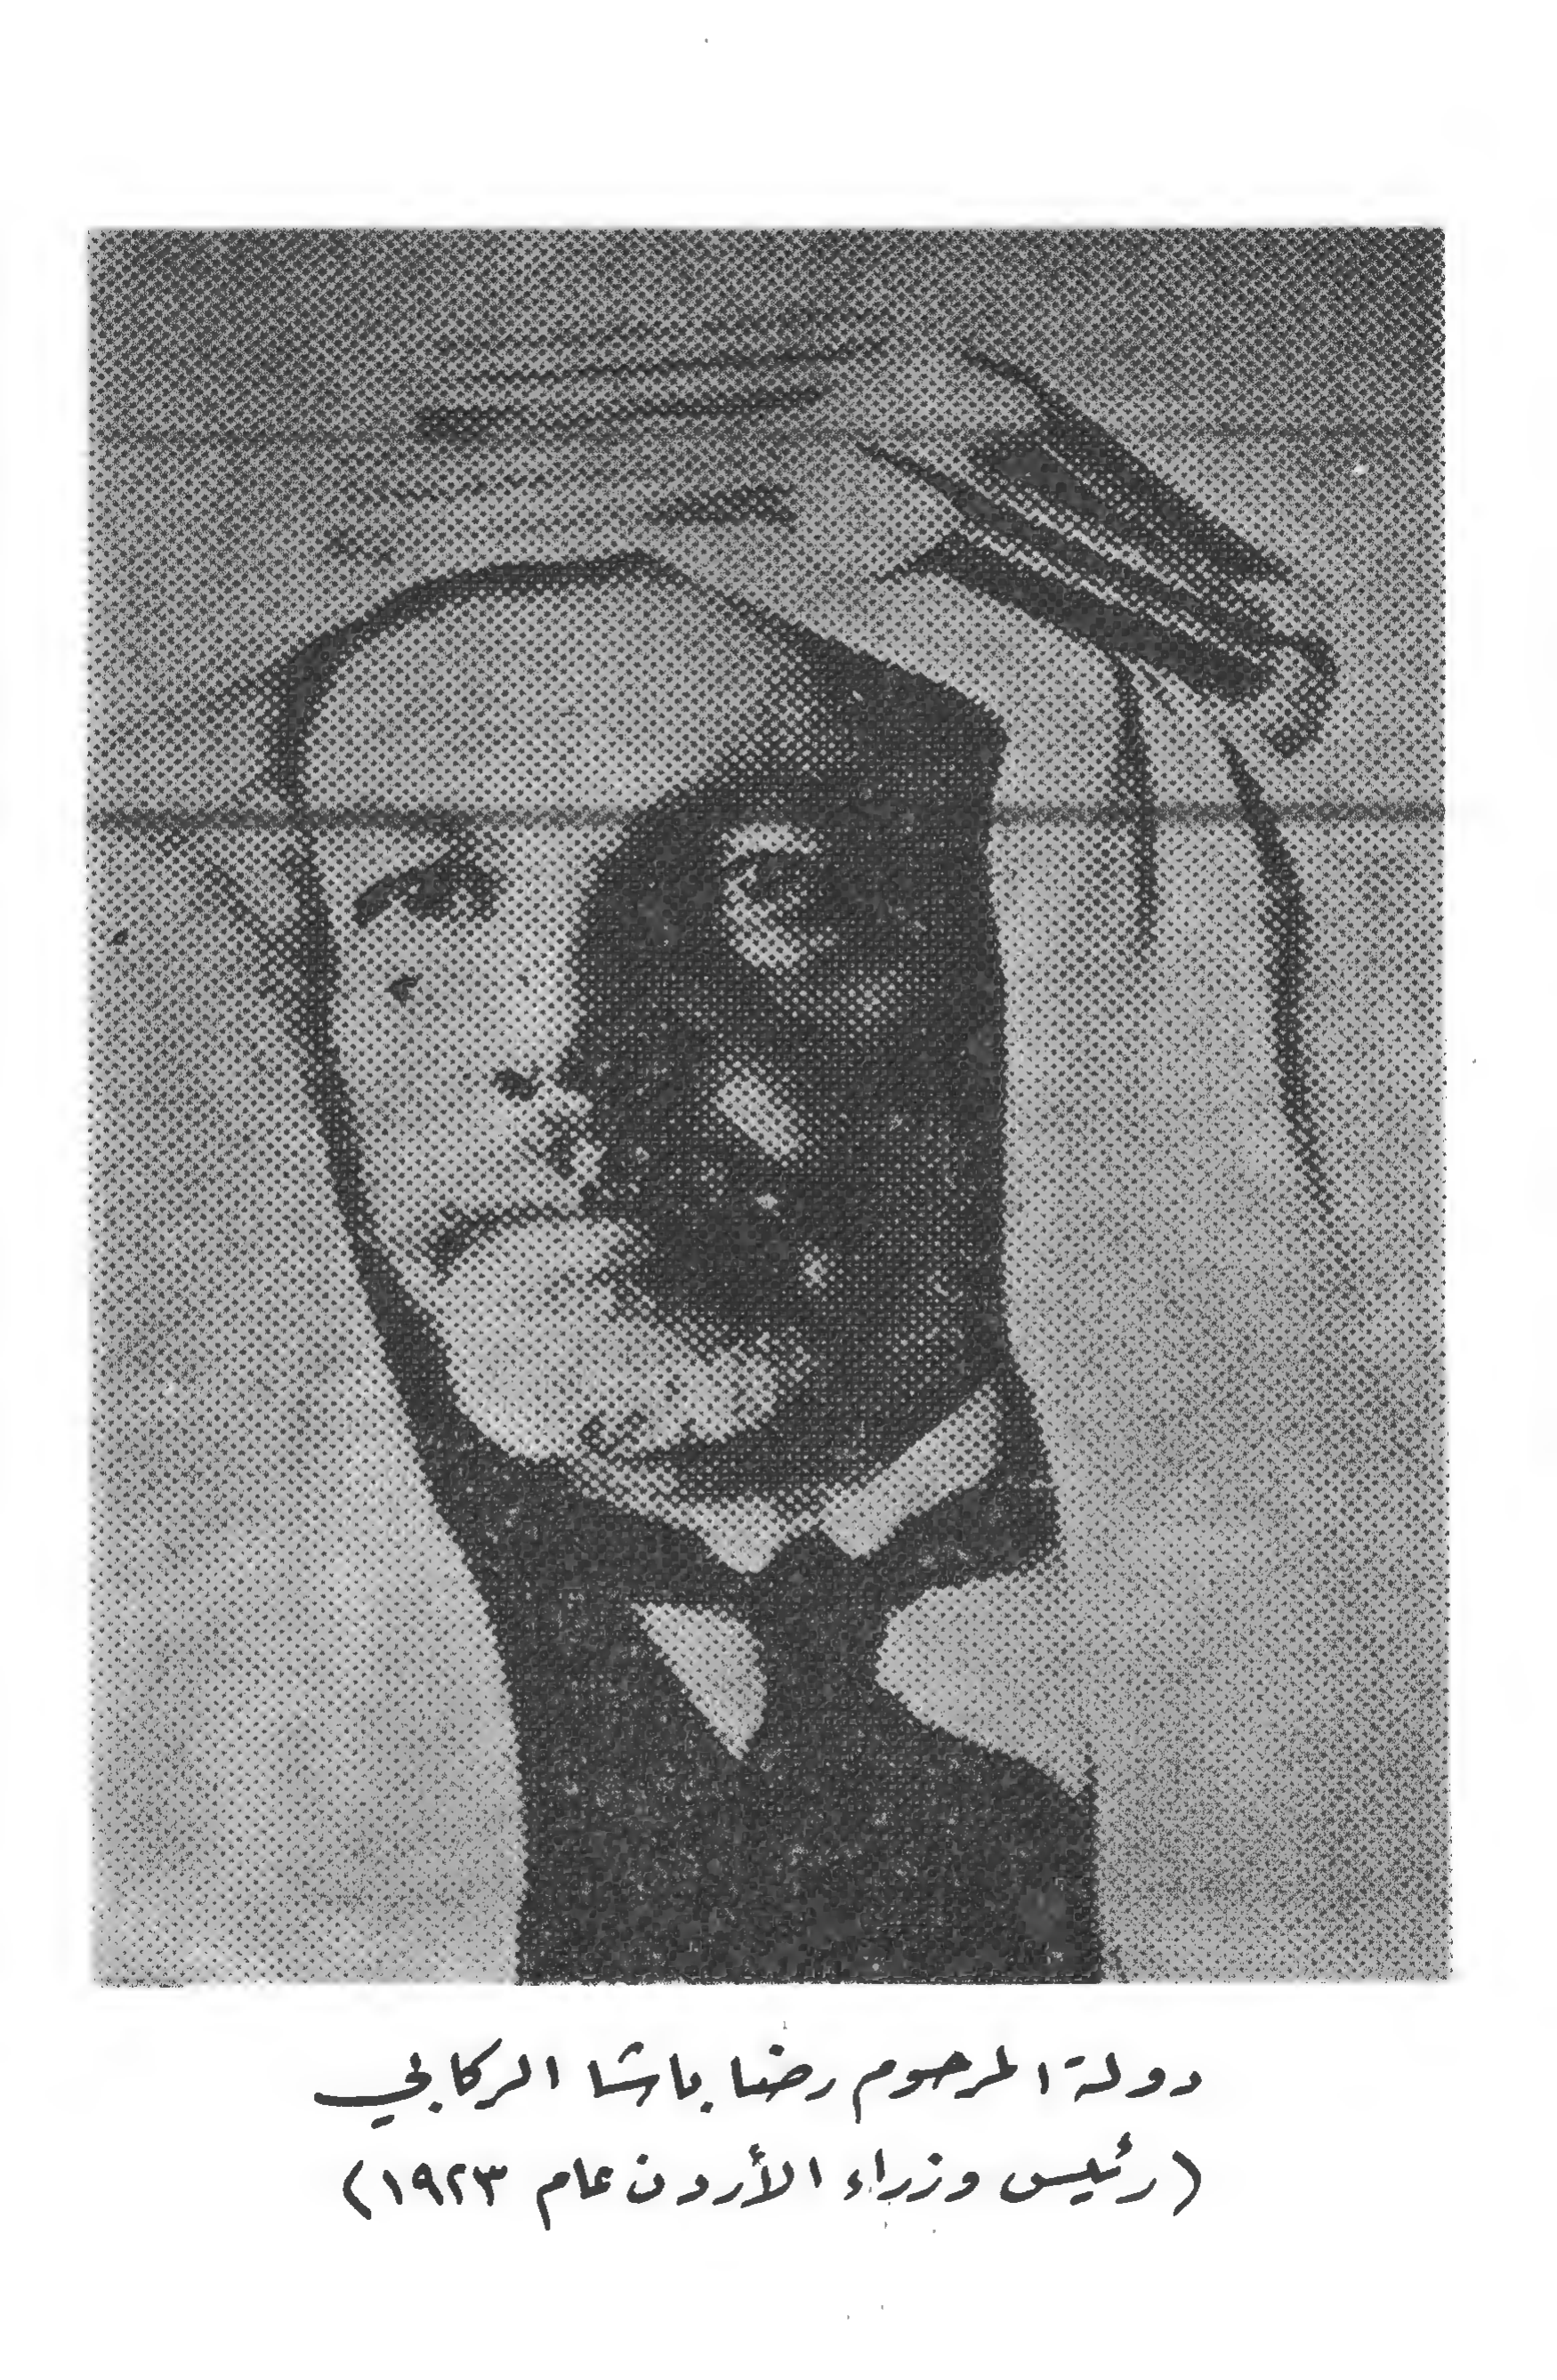 دولة المرحوم رضا باشا الركابي
(رئيس وزراء الأردن عام ١٩٢٣)